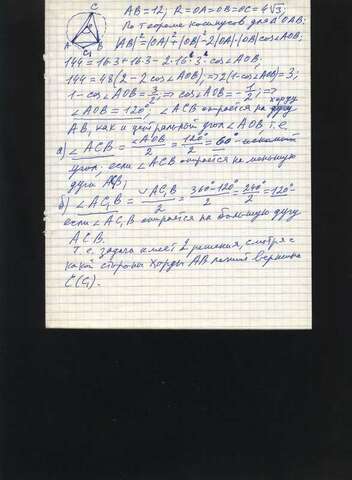 C
O
A B
C₁
AB = 12; R = OA = OB = OC = 4√3;
По теореме косинусов для △OAB:
|AB|² = |OA|² + |OB|² - 2|OA|·|OB| cos∠AOB;
144 = 16·3 + 16·3 - 2·16·3·cos∠AOB;
144 = 48(2 - 2cos∠AOB); => 2(1 - cos∠AOB) = 3;
1 - cos∠AOB = 3/2; => cos∠AOB = -1/2; =>
∠AOB = 120°, ∠ACB опирается на хорду
AB, как и центральный угол ∠AOB, т.е.
а) ∠ACB = ∠AOB/2 = 120°/2 = 60° - искомый
угол. если ∠ACB опирается на меньшую
дугу AC₁B;
б) ∠AC₁B = ◡AC₁B/2 = 360°-120°/2 = 240°/2 = 120° -
если ∠AC₁B опирается на большую дугу
ACB.
Т.е. задача имеет 2 решения, смотря с
какой стороны хорды AB лежит вершина
C(C₁).